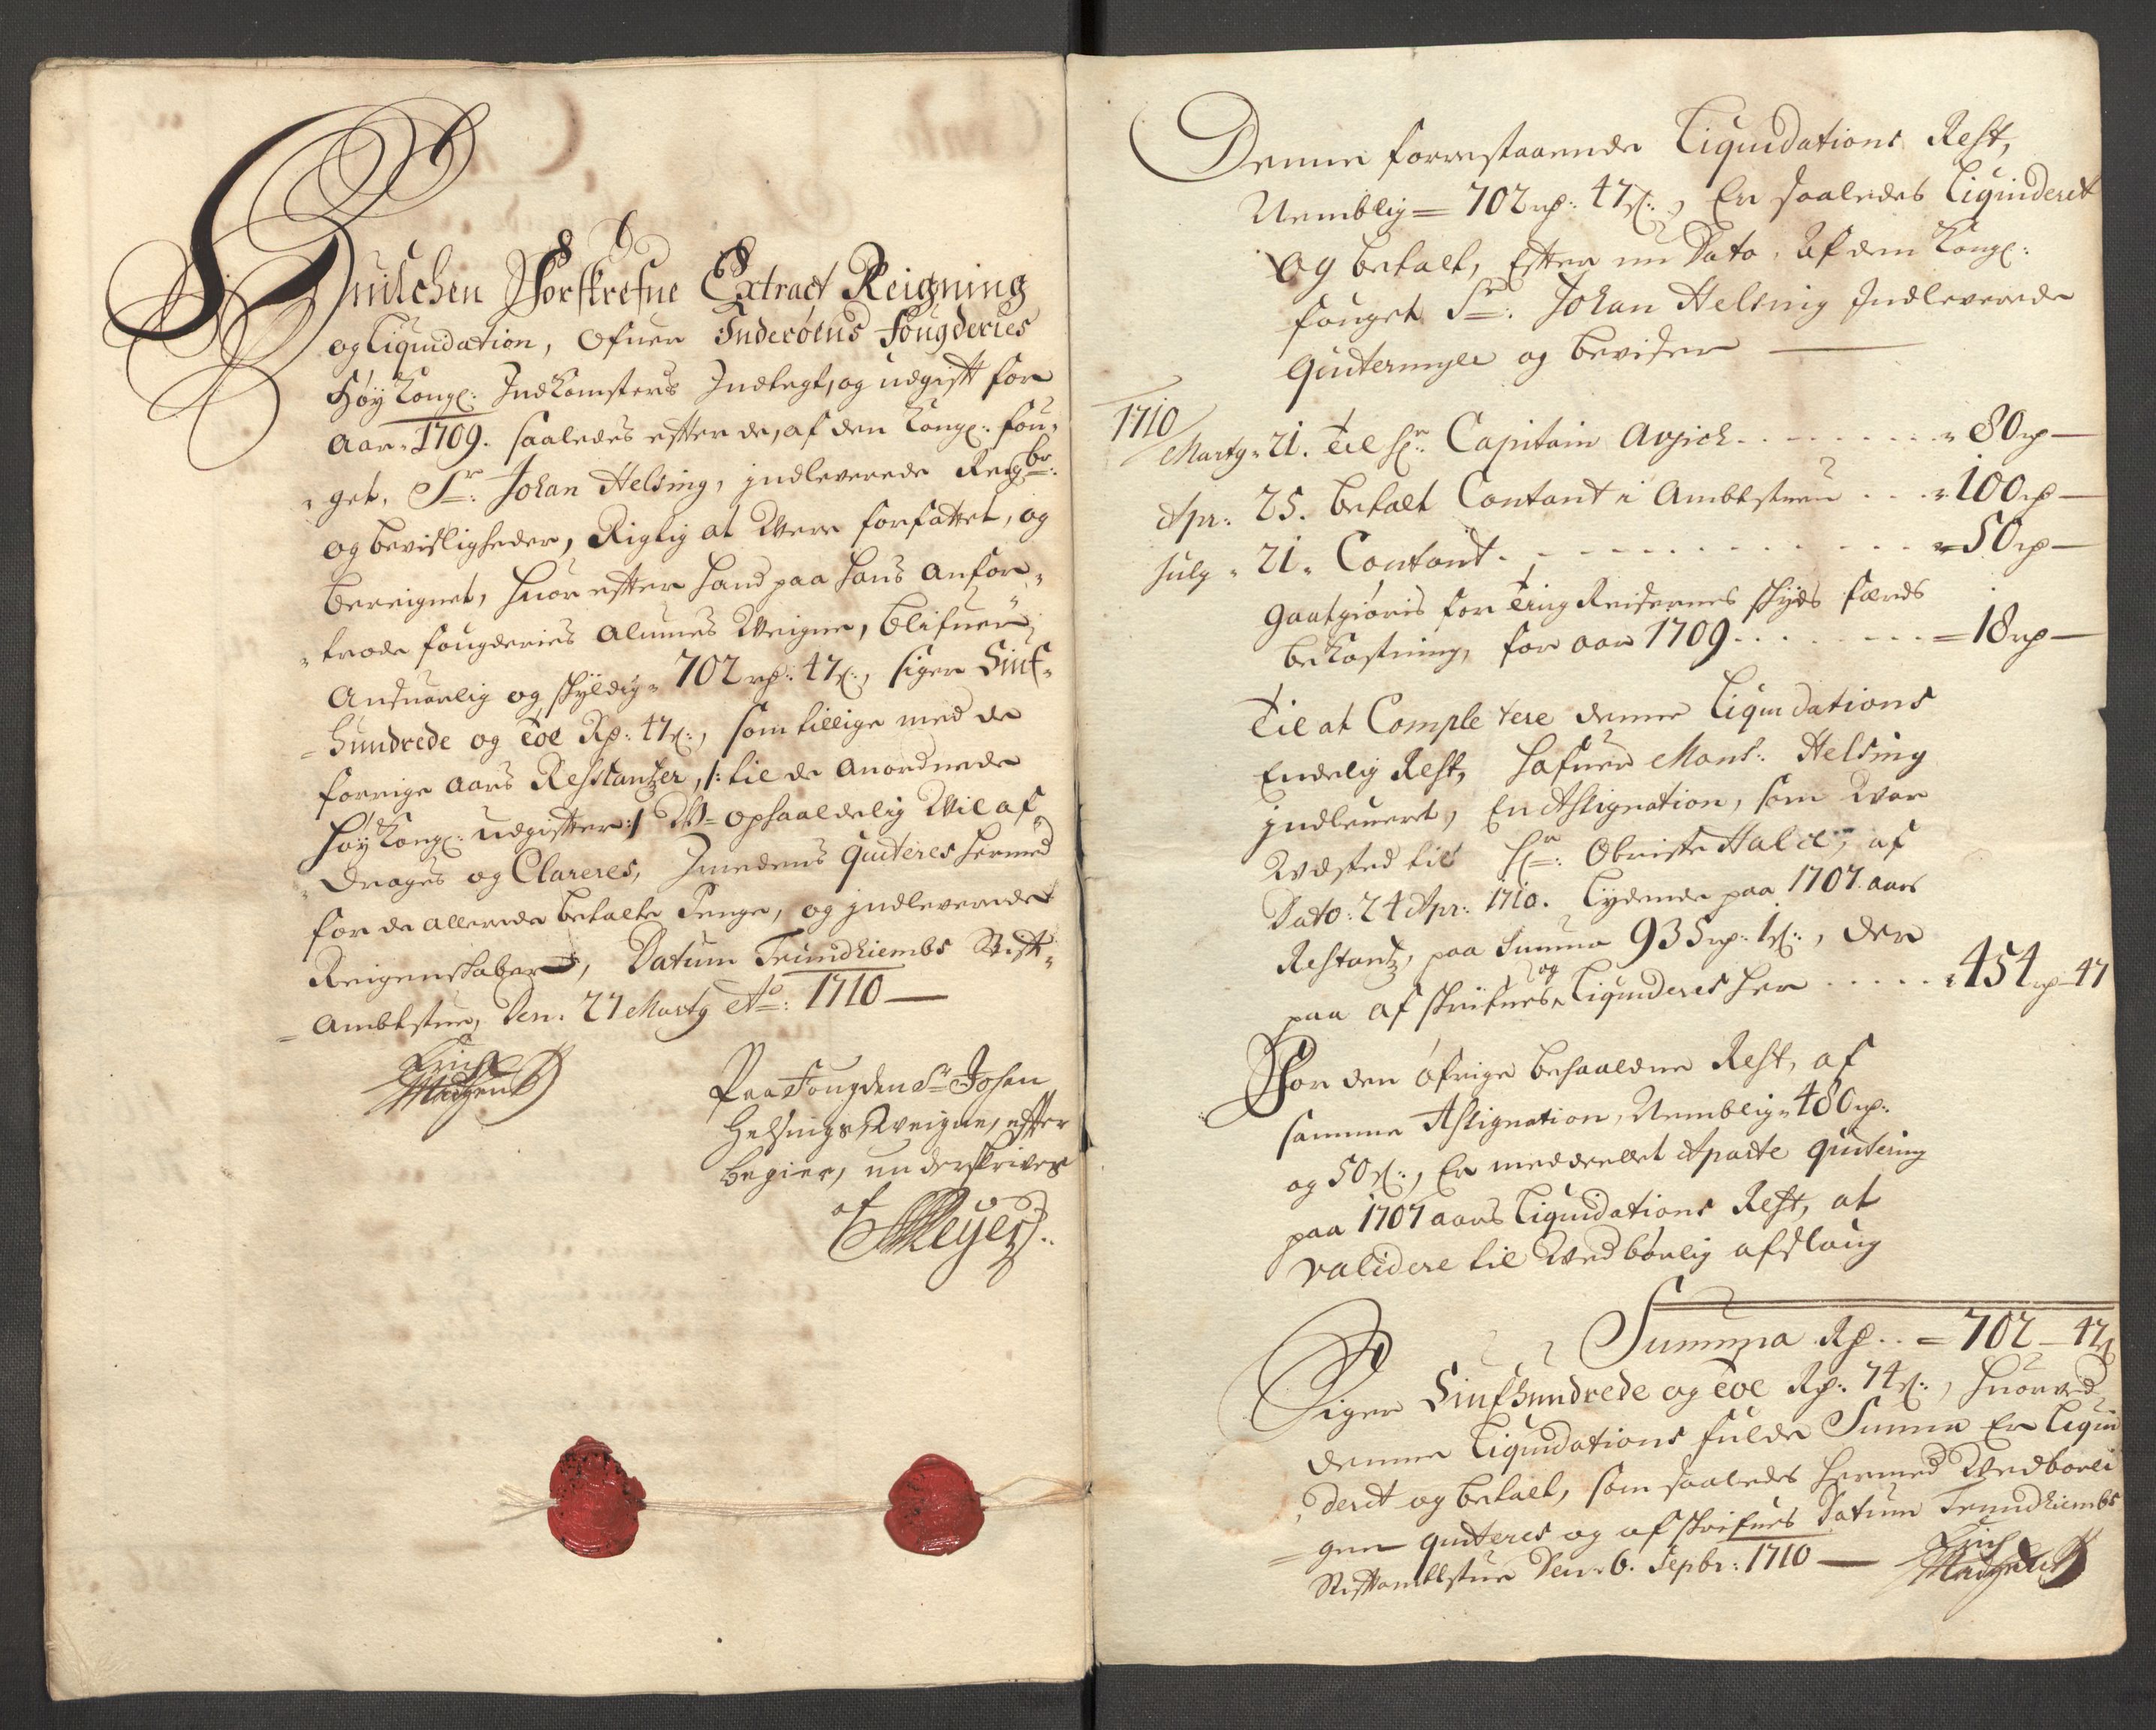 Huilchen Forskrefne Extract Reigning
og Liquidation, Ofuer Inderöens Fougderies
Höy Kongl: Indkomsters Indtegt, og udgift for
Aar 1709. saaledes efter de, af den Kongl: fou-
get, Sr: Johan Helsing, indleverede Regbr:
og bevisligheder, Rigtig at Were forfattet, og
bereignet, huor efter hand paa hans anfor-
trode fougderies Almues Weigne, blifuer
Ansuarlig og skyldig 702 rd: 47 s:, siger Siuf-
hundrede og Toe Rd: 47 s:, som tillige med de
forrige aars Restantzer, /: til de anordnede
höy Kongl: udgifter :/ W-ophaaldelig Wil af
drages og Clareres, Imedens quiteres hermed
for de allerede betalte Penge, og indleverede
Reigenskaber, Datum Trundhiembs Stift-
Ambtstue, Den: 27 Marty Ao: 1710 —
Paa Fougden Sr Johan
Helsings Weigne, efter
begier, underskriver
af
Meyer
Denne forrestaaende Liquidations Rest,
Nemblig = 702 rd: 47 s:, Er saaledes Liquideret
og betalt, Efter nu Dato, af den Kongl:
fouget Sr: Johan Helsing Indleverede
quiteringer og beviser —
1710
Marty 21. Til Hr: Capitain . . . 80 rd —
Apr: 25. betalt Contant i Ambtstuen . . . 100 rd —
July 21. Contant . . . 50 rd —
Gaatgiöris for Ting Reisernes skyds færds
bekostning, for aar 1709 . . . = 18 rd —
Til at Completere denne Liquidations
Endelig Rest, hafuer Mons: Helsing
indleveret, En Assignation, som War
Wdsted til Hr: Obriste, af
Dato: 24 Apr: 1710. Lydende paa 1707 aars
Restantz, paa Summa 935 rd: 1 s:, der
paa afskrifues og Liquideres her . . . 454 rd 47
For den öfrige behaaldne Rest, af
samme Assignation, Nemblig 480 rd:
og 50 s:, Er meddeellet Aparte quitering
paa 1707 aars Liquidations Rest, at
validere til Wedbörlig afslaug
Summa Rd . . = 702 — 47 s
Siger Siufhundrede og Toe Rd: 74 s:, huorved
denne Liquidations fulde Summa Er Liqui
deret og betalt, som saaledes hermed Wedbörli
gen quiteres og afskrifues Datum Trundhiembs
Stiftambtstue Den 6. Sepbr: 1710 —